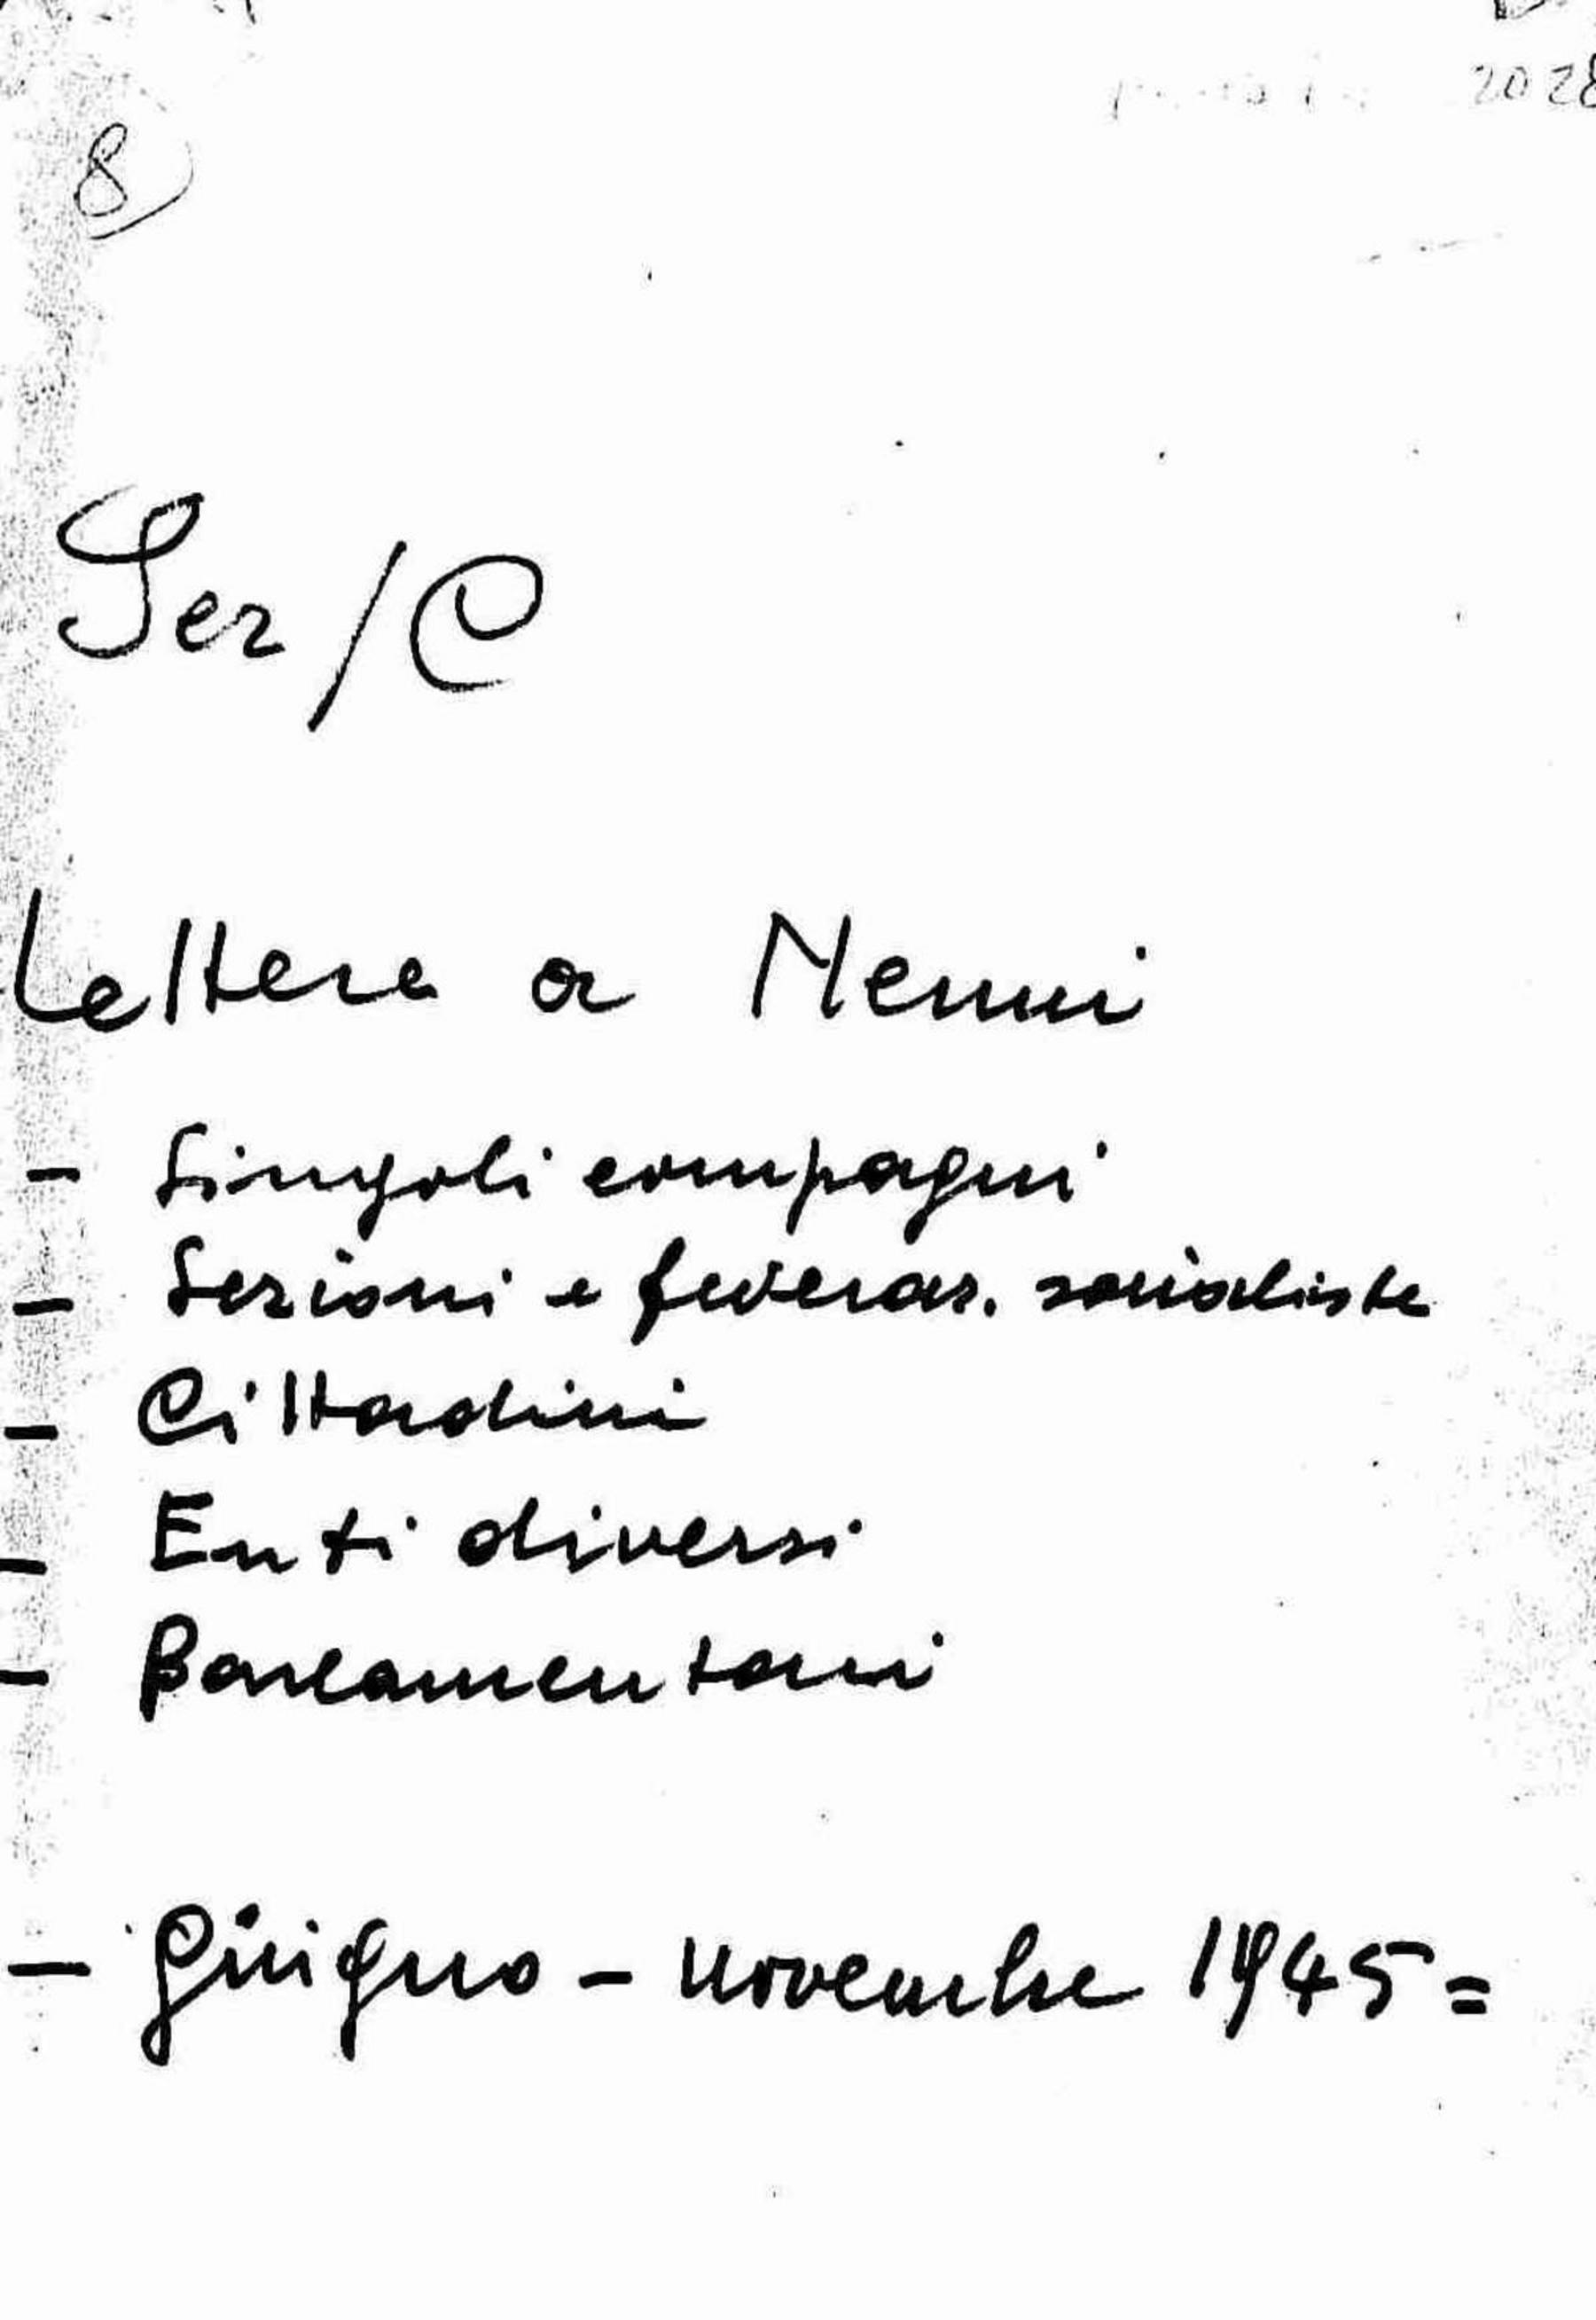 2028
8
Ser/C
Lettere a Nenni
- Singoli compagni
- Sezioni e federaz. socialiste
- Cittadini
- Enti diversi
- Parlamentari
- Giugno - novembre 1945=